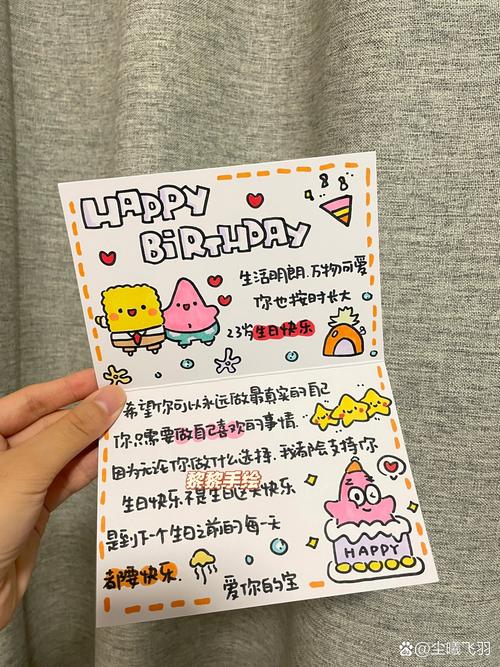 HAPPY
BiRTHDAY
生活明朗.万物可爱
你也按时长大
23岁生日快乐
希望你可以永远做最真实的自己
你只需要做自己喜欢的事情
因为无论你做什么选择,我都会支持你
黎黎手绘
生日快乐不是生日这天快乐
是到下一个生日之前的每一天
都要快乐.
爱你的宝
HAPPY
@尘曦飞羽